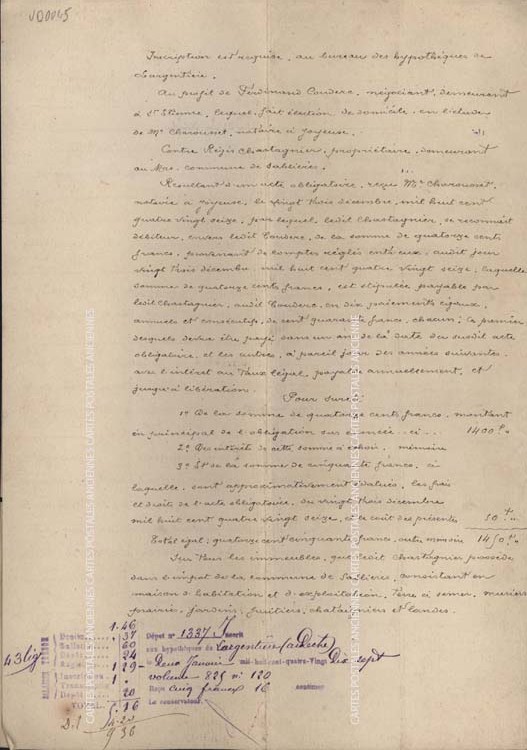 Inscription est requise, au bureau des hypothèques de
Largentière.
Au profit de Ferdinand Couderc, négociant, demeurant
à St Etienne, lequel fait élection de domicile en l'étude
de Me Charousset, notaire à Joyeuse.
Contre Régis Chastagnier, propriétaire, demeurant
au Mas, commune de Sablières.
Résultant d'un acte obligatoire, reçu Me Charousset,
notaire à Joyeuse, le vingt trois décembre, mil huit cent
quatre vingt seize, par lequel, ledit Chastagnier, se reconnait
débiteur, envers ledit Couderc, de la somme de quatorze cents
francs, provenant de comptes réglés entr'eux, audit jour
vingt trois décembre mil huit cent quatre vingt seize, laquelle
somme de quatorze cents francs, est stipulée payable par
ledit Chastagnier, audit Couderc, en dix paiements égaux,
annuels et consécutifs, de cent quarante francs, chacun; le premier
desquels devra être payé dans un an de la date du susdit acte
obligatoire, et les autres, à pareil jour des années suivantes
avec l'intérêt au taux légal, payable annuellement, et
jusqu'à libération.
Pour sureté
1° De la somme de quatorze cents francs, montant
en principal de l'obligation sus énoncée ci... 1400 "
2° Des intérêts de cette somme à échoir, mémoire
3° Et de la somme de cinquante francs, à
laquelle, sont approximativement évalués, les frais
et droits de l'acte obligatoire, du vingt trois décembre
mil huit cent quatre vingt seize, et le coût des présentes 50 "
Total égal; quatorze cent cinquante francs, outre mémoire 1450 "
Sur tous les immeubles, que ledit Chastagnier possède
dans l'étendue de la commune de Sablières, consistant en
maison d'habitation et d'exploitation, terre à semer, muriers
prairies, jardins, fruitiers, chataigniers et landes.
1.46
37
60
24
1 29
1 "
20
TOTAL 5.16
4.20
9 36
43 lig
Dépôt n° 1337 Inscrit
aux hypothèques de Largentière (ardèche)
le Deux Janvier mil-huit-cent-quatre-vingt Dix sept
volume 825 n° 120
Reçu cinq francs 16 centimes
Le conservateur,
CARTES POSTALES ANCIENNES CARTES POSTALES ANCIENNES CARTES POSTALES ANCIENNES
CARTES POSTALES ANCIENNES